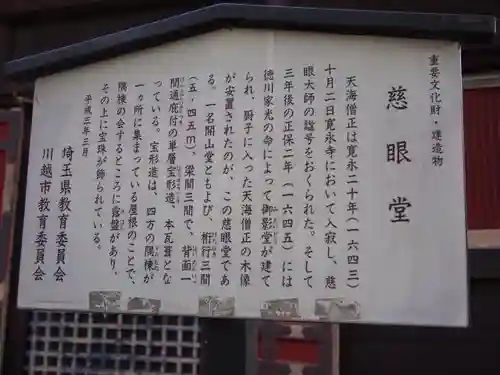 重要文化財・建造物
慈眼堂
天海僧正は寛永二十年（一六四三）
十月二日寛永寺において入寂し、慈
眼大師の諡号をおくられた。そして
三年後の正保二年（一六四五）には
徳川家光の命によって御影堂が建て
られ、厨子に入った天海僧正の木像
が安置されたのが、この慈眼堂であ
る。一名開山堂ともよび、桁行三間
（五・四五m）、梁間三間で、背面一
間通庇付の単層宝形造、本瓦葺とな
っている。宝形造は、四方の隅棟が
一ヵ所に集まっている屋根のことで、
隅棟の会するところに露盤があり、
その上に宝珠が飾られている。
平成三年三月
埼玉県教育委員会
川越市教育委員会